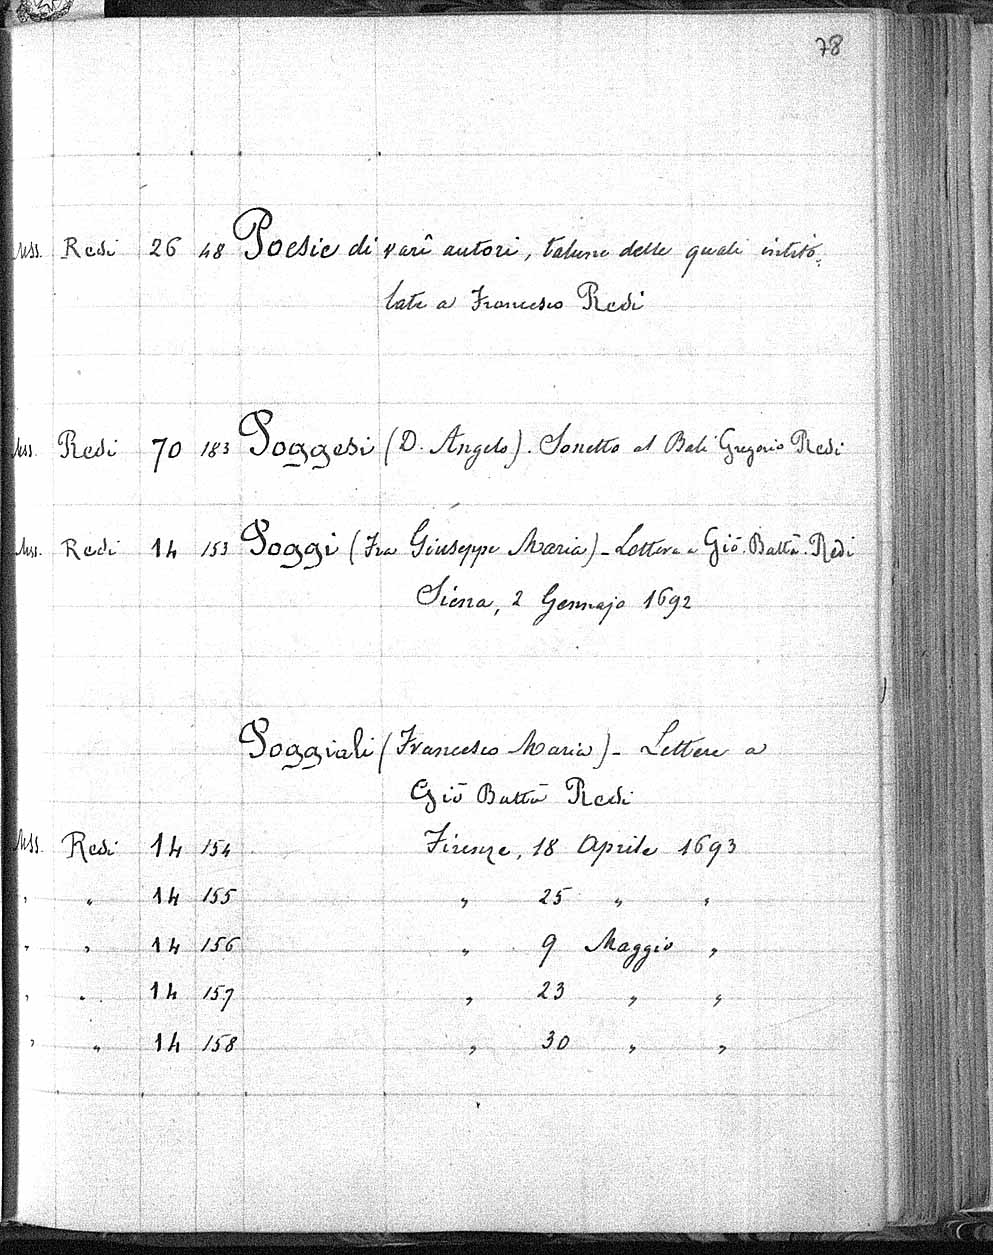 78
Mss. Redi 26 48 Poesie di varî autori, talune delle quali intito-
late a Francesco Redi
Mss. Redi 70 183 Poggesi (D. Angelo). Sonetto al Balì Gregorio Redi
Mss. Redi 14 153 Poggi (Fra Giuseppe Maria) - Lettera a Giō. Battā. Redi
Siena, 2 Gennajo 1692
Poggiali (Francesco Maria) - Lettere a
Giō Battā Redi
Mss. Redi 14 154 Firenze, 18 Aprile 1693
" " 14 155 " 25 " "
" " 14 156 " 9 Maggio "
" " 14 157 " 23 " "
" " 14 158 " 30 " "